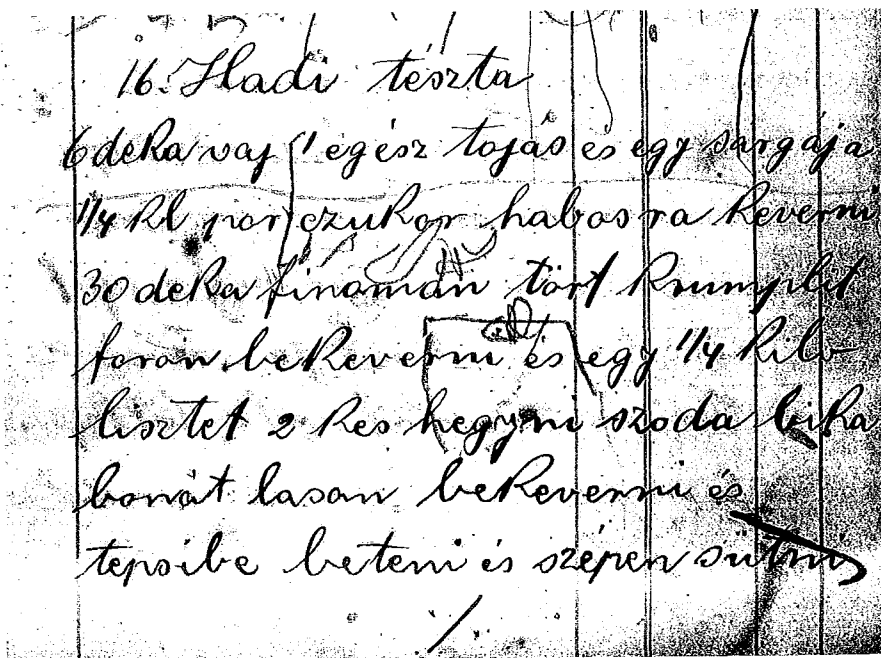 16. Hadi tészta
6 deka vaj 1 egész tojás és egy sárgája
1/4 kl porczukor habosra keverni
30 deka finomán tört krumplit
foron bekeverni és egy 1/4 kilo
lisztet 2 kes hegyni szoda bika
bonát lasan bekeverni és
tepsibe betenni és szépen sütni